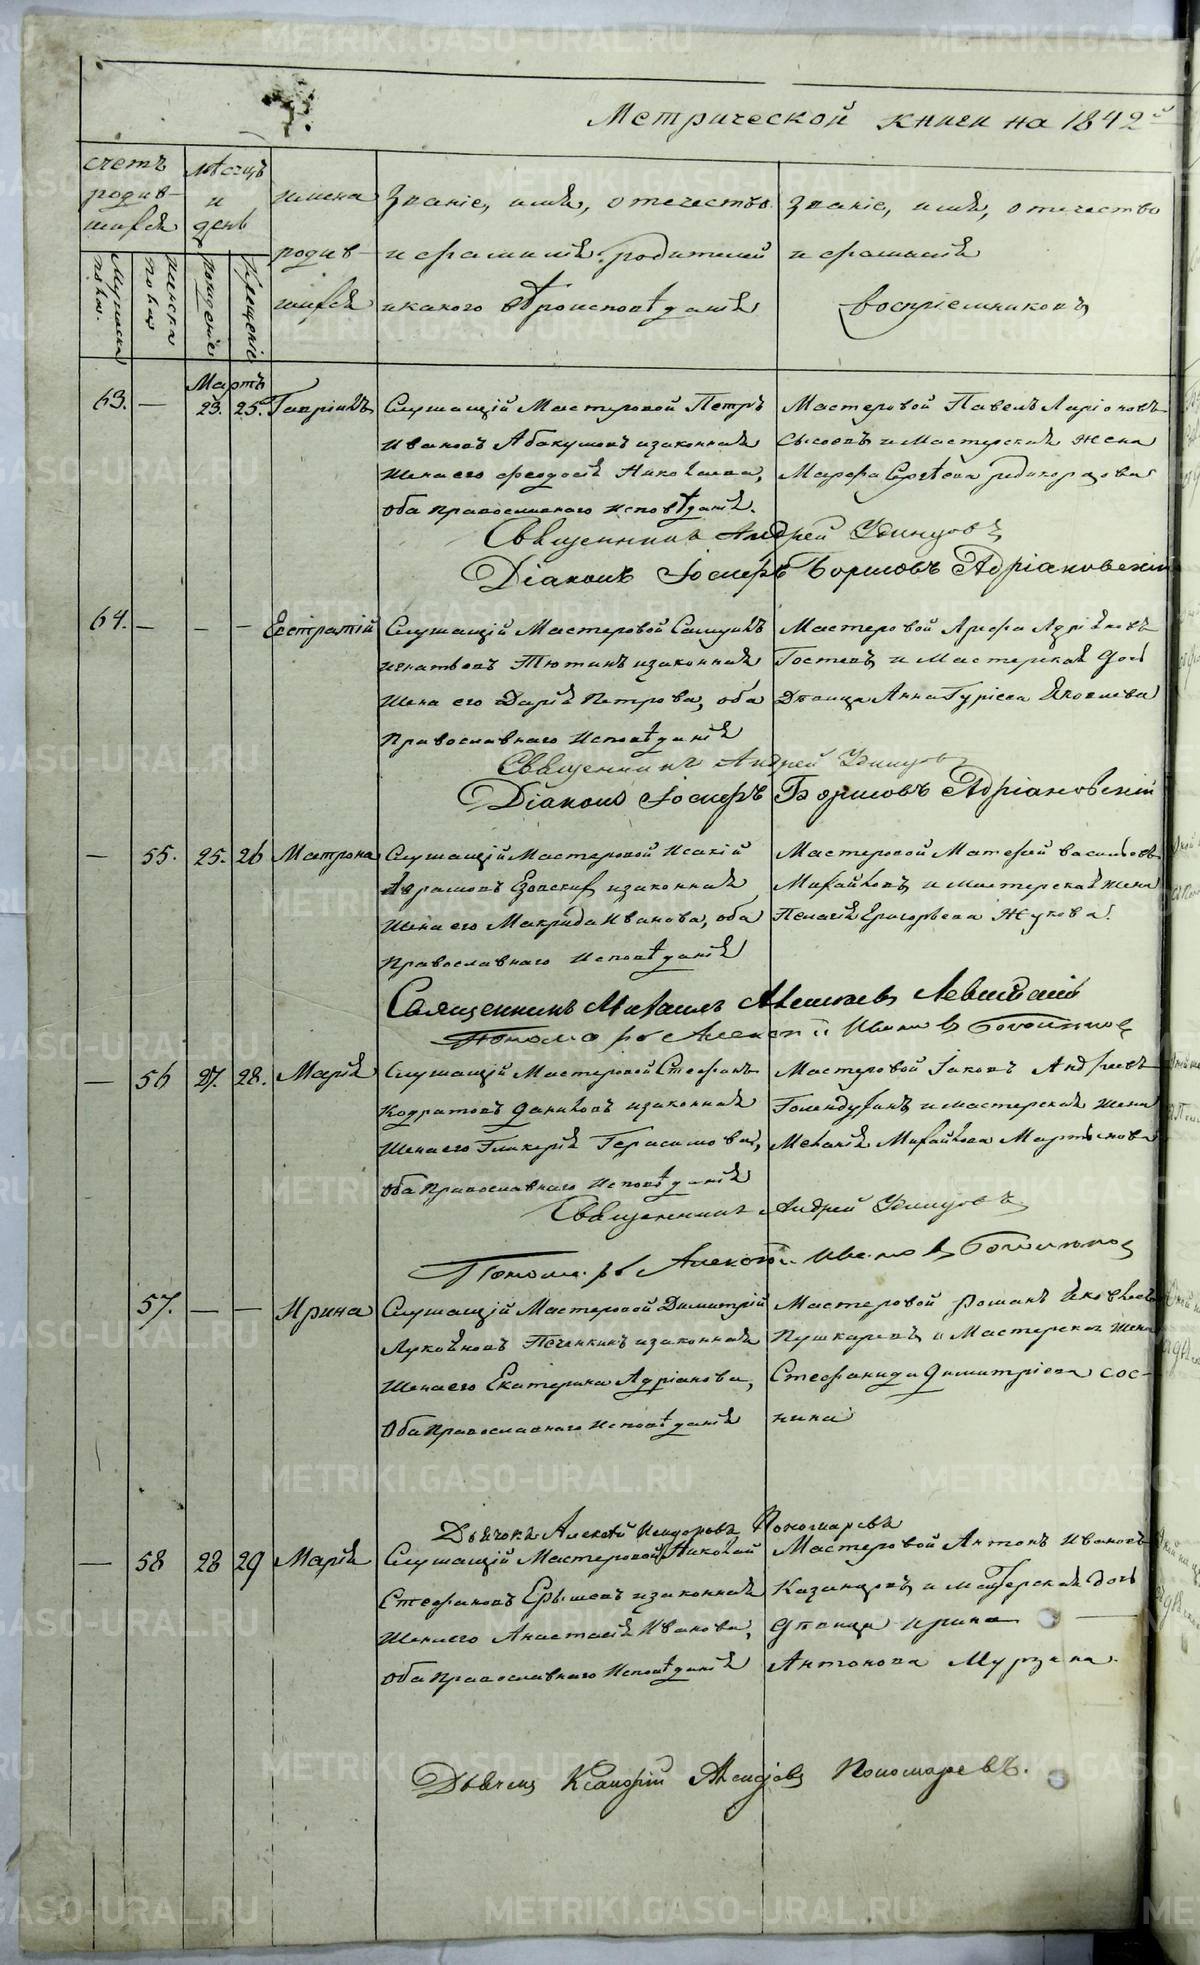 Метрической книги на 1842й
счетъ родив- шихся
мѣсяцъ и день
Мужеска полка.
Женска полка
Рожденіе
Крещеніе
имена
родив-
шихся
Званіе, имя, отечество
и фамилія родителей
и какого вѣроисповѣданія
Званіе, имя, отечество
и фамилія
воспріемниковъ
Мартъ
63. — 23. 25. Гавріилъ
Служащій Мастеровой Петръ
Ивановъ Абакумовъ изаконная
Жена его Феодосія Николаева,
оба православнаго исповѣданія.
Мастеровой Павелъ Ларіоновъ
Сысоевъ и Мастерская жена
Марфа Сергѣева
Священникъ Андрей Удинцовъ
Діаконъ Іосифъ Борисовъ Адріановскій
64. — — — Евстратій
Служащій Мастеровой Самуилъ
Игнатьевъ Тютинъ изаконная
Жена его Дарія Петрова, оба
Православнаго Исповѣданія
Мастеровой Арефа Адріановъ
Гостевъ и Мастерская дочь
Дѣвица Анна Гуріева Яковлева
Священникъ Андрей Удинцовъ
Діаконъ Іосифъ Борисовъ Адріановскій
— 55. 25. 26 Матрона
Служащій Мастеровой Исакій
Аврамовъ изаконная
Жена его Макрида Иванова, оба
Православнаго Исповѣданія
Мастеровой Матфей Васильевъ
Михайловъ и мастерская жена
Пелагія Григорьева Жукова.
Священникъ Михаилъ Алексіевъ Левитскій
Пономарь Алексѣй Ивановъ
— 56 27. 28. Марія
Служащій Мастеровой Стефанъ
Кодратовъ Даниловъ изаконная
Жена его Гликерія Герасимова,
оба Православнаго Исповѣданія
Мастеровой Іаковъ Андреевъ
Голендухинъ и мастерская жена
Меланія Михайлова Мартынова
Священникъ Андрей Удинцовъ
Пономарь Алексѣй Ивановъ
57. — — Ирина
Служащій Мастеровой Димитрій
Печенкинъ изаконная
Жена его Екатерина Адріанова,
Оба Православнаго Исповѣданія
Мастеровой Романъ Яковлевъ
Пушкаревъ и Мастерская Жена
Стефанида Димитріева Сос-
нина
Дьячокъ Алексѣй Исидоровъ Пономаревъ
— 58 28 29 Марія
Служащій Мастеровой Николай
Стефановъ Ерышевъ изаконная
Жена его Анастасія Иванова,
Оба Православнаго Исповѣданія
Мастеровой Антонъ Ивановъ
Казанцовъ и Мастерская дочь
дѣвица Ирина
Антонова Мурзина.
Дьячекъ Пономаревъ.
METRIKI.GASO-URAL.RU